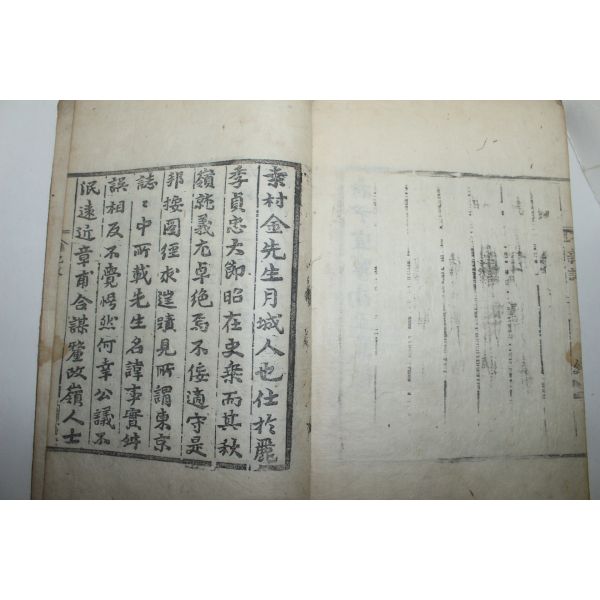 桑村金先生月城人也仕於麗
季貞忠大節昭在史乘而其秋
嶺難義尤卓絶焉不佞適守是
邦按圖經求遑蹟見所謂東京
誌〻中所載先生名諱事實舛
誤相反不覺愕然何幸公議不
泯遠近章甫合謀釐改嶺人士